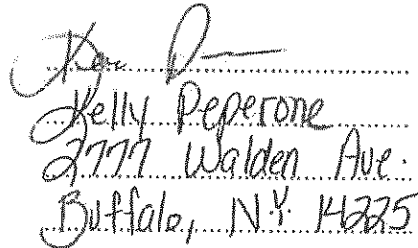 Kelly Peperone
2777 Walden Ave.
Buffalo, N.Y. 14225